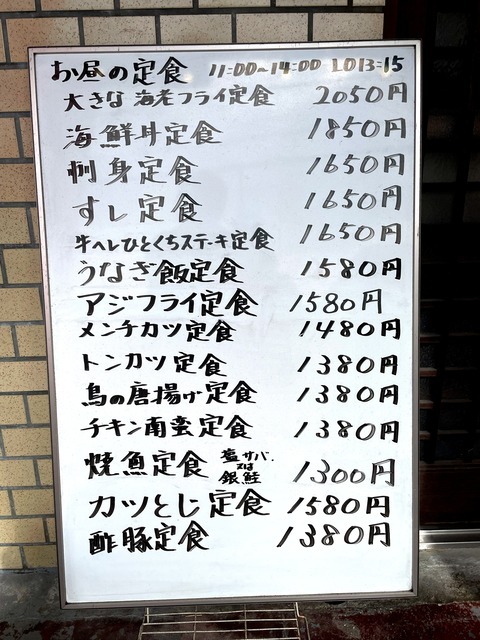 お昼の定食 11:00~14:00 LO13:15
大きな海老フライ定食 2050円
海鮮丼定食 1850円
刺身定食 1650円
すし定食 1650円
牛ヘレひとくちステーキ定食 1650円
うなぎ飯定食 1580円
アジフライ定食 1580円
メンチカツ定食 1480円
トンカツ定食 1380円
鳥の唐揚げ定食 1380円
チキン南蛮定食 1380円
焼魚定食 塩サバ.又は銀鮭 1300円
カツとじ定食 1580円
酢豚定食 1380円